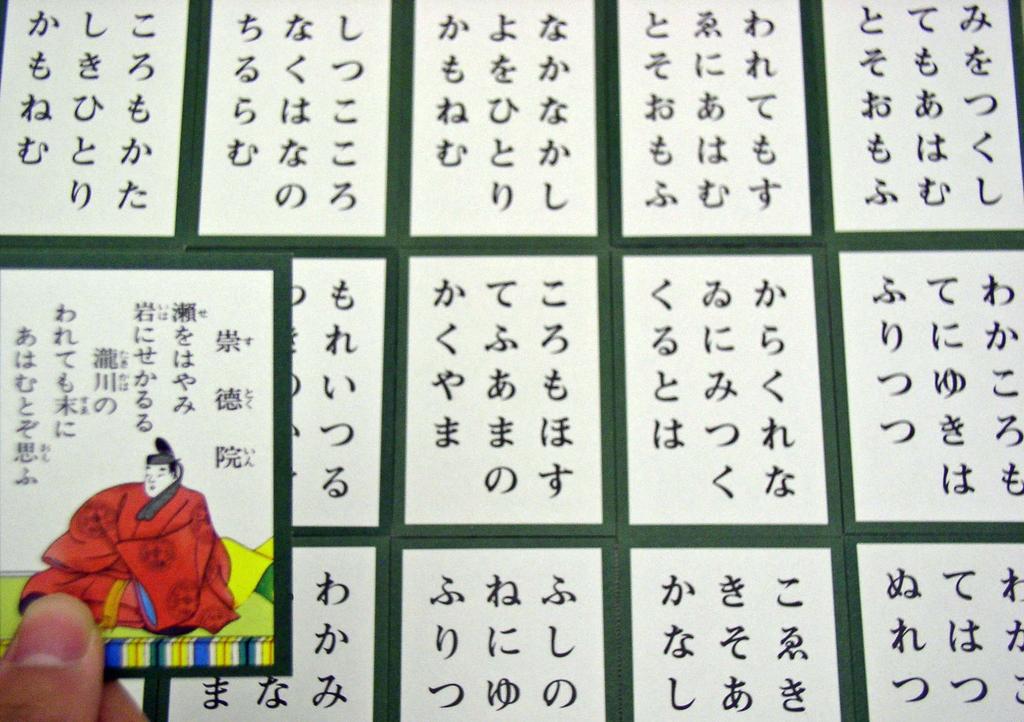 ころもかた
しきひとり
かもねむ
しつこころ
なくはなの
ちるらむ
なかなかし
よをひとり
かもねむ
われてもす
ゑにあはむ
とそおもふ
みをつくし
てもあはむ
とそおもふ
崇徳院
すとくいん
瀬をはやみ
岩にせかるる
瀧川の
われても末に
あはむとぞ思ふ
もれいつる
ころもほす
てふあまの
かくやま
からくれな
ゐにみつく
くるとは
わかころも
てにゆきは
ふりつつ
わかみ
な
ま
ふしの
ねにゆ
ふりつ
こゑき
きそあ
かなし
わかこ
てはつ
ぬれつ